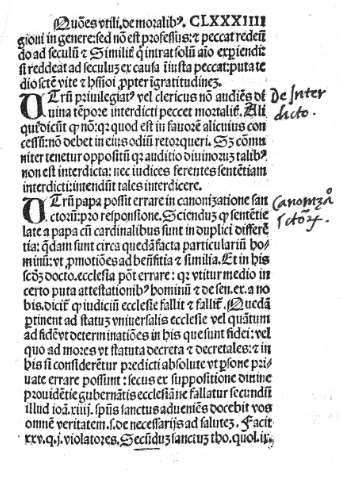 Quões vtili. de moralib⁹. CLXXXIIII
gioni in genere: sed nō est professus: ⁊ peccat redeūdo
do ad seculū ⁊ Similiṫ q̄ intrat solū aīo experiendi:
si reddeat ad seculuȝ ex causa iiusta peccat: puta te
dio sct̄e vite ⁊ hm̄oi ꝓpter īgratitudineȝ.
VTrū priuilegiat⁹ vel clericus nō audiēs di
uina tēpore interdicti peccet mortaliṫ. Ali
qui dicūt ꝙ nō: qꝛ quod est in fauorē alicuius con
cessū: nō debet in eius odiū retorqueri. Sȝ cōmu
niter tenetur oppositū qꝛ auditio diuinoruȝ talib⁹
non est interdicta: nec iudices ferentes sentētiam
interdicti: intendūt tales interdicere.
De Inter
dicto.
VTrū papa possit errare in canonizatione san
ctoꝝ: pro responsione. Scienduȝ ꝙ sentētie
late a papa cū cardinalibus sunt in duplici differē
tia: q̄dam sunt circa quedā facta particulariū ho-
minū: vt ꝓmotiōes ad bn̄fitia ⁊ similia. Et in his
scḋȝ docto. ecclesia pōt errare: qꝛ vtitur medio in
certo puta attestationib⁹ hominū ⁊ de sen. ex. a no
bis. dicit̄ ꝙ iudiciū ecclesie fallit ⁊ fallit̄. Quedā
ꝑtinent ad statuȝ vniuersalis ecclesie vel quātum
ad fidē vt determinatiōes in his que sunt fidei: vel
quo ad mores vt statuta decreta ⁊ decretales: ⁊ in
his si considerētur predicti absolute vt ꝑsone pri-
uate errare possunt: secus ex suppositione diuine
prouidētie gubernātis ecclesiā ne fallatur secundū
illud ioā. xiiij. spūs sanctus adueniēs docebit vos
omnē veritatem. s. de necessarijs ad saluteȝ. Facit
xxv. q. j. violatores. Secūduȝ sanctuȝ tho. quol. ix.
Canonizaõ
sctoꝝ.